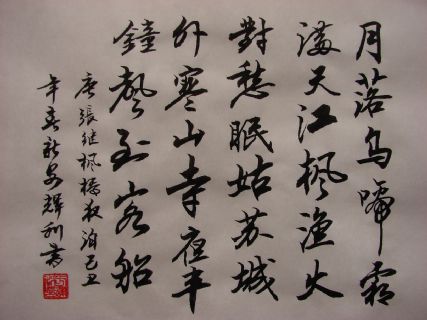 月落乌啼霜
满天江枫渔火
對愁眠姑苏城
外寒山寺夜半
鐘聲到客船
唐張继枫橋夜泊己丑
年春新安輝利書